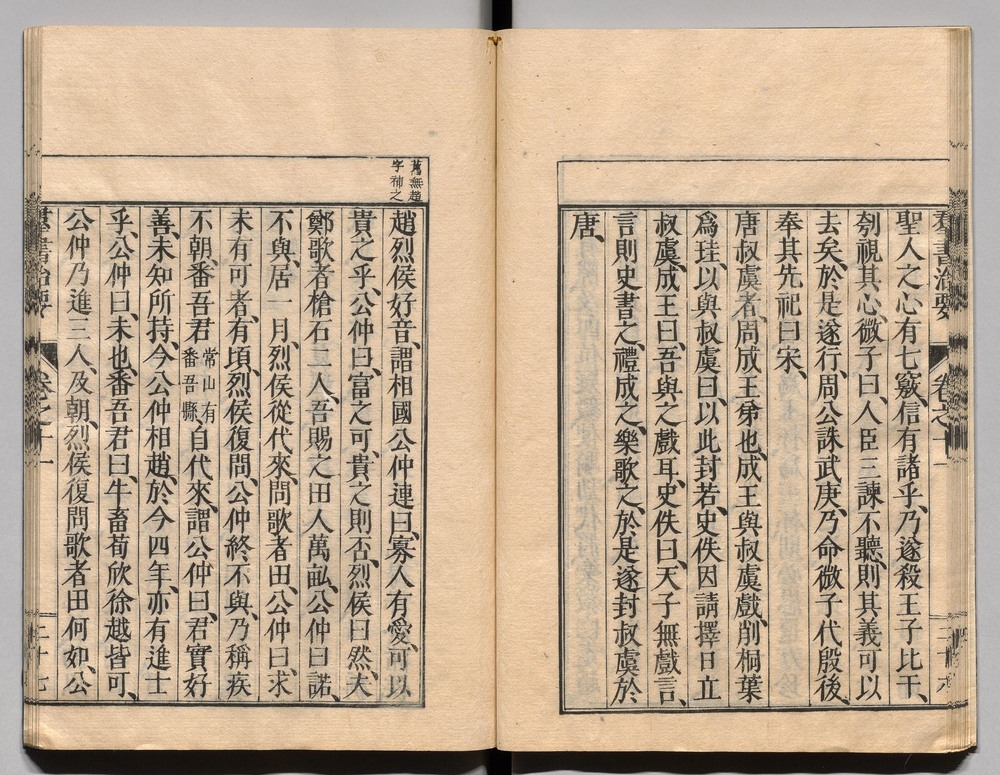 聖人之心有七竅、信有諸乎、乃遂殺王子比干、
刳視其心、微子曰、人臣三諫不聽、則其義可以
去矣、於是遂行、周公誅武庚、乃命微子代殷後、
奉其先祀曰宋、
唐叔虞者、周成王弟也、成王與叔虞戲、削桐葉
爲珪、以與叔虞曰、以此封若、史佚因請擇日立
叔虞、成王曰、吾與之戲耳、史佚曰、天子無戲言、
言則史書之、禮成之、樂歌之、於是遂封叔虞於
唐、
舊無趙
字補之
趙烈侯好音、謂相國公仲連曰、寡人有愛、可以
貴之乎、公仲曰、富之可、貴之則否、烈侯曰、然、夫
鄭歌者槍石二人、吾賜之田人萬畝、公仲曰諾、
不與、居一月、烈侯從代來、問歌者田、公仲曰、求
未有可者、有頃、烈侯復問、公仲終不與、乃稱疾
不朝、番吾君常山有番吾縣自代來、謂公仲曰、君實好
善、未知所持、今公仲相趙、於今四年、亦有進士
乎、公仲曰、未也、番吾君曰、牛畜荀欣徐越皆可、
公仲乃進三人、及朝、烈侯復問歌者田何如、公
群書治要 卷之十一 二十七